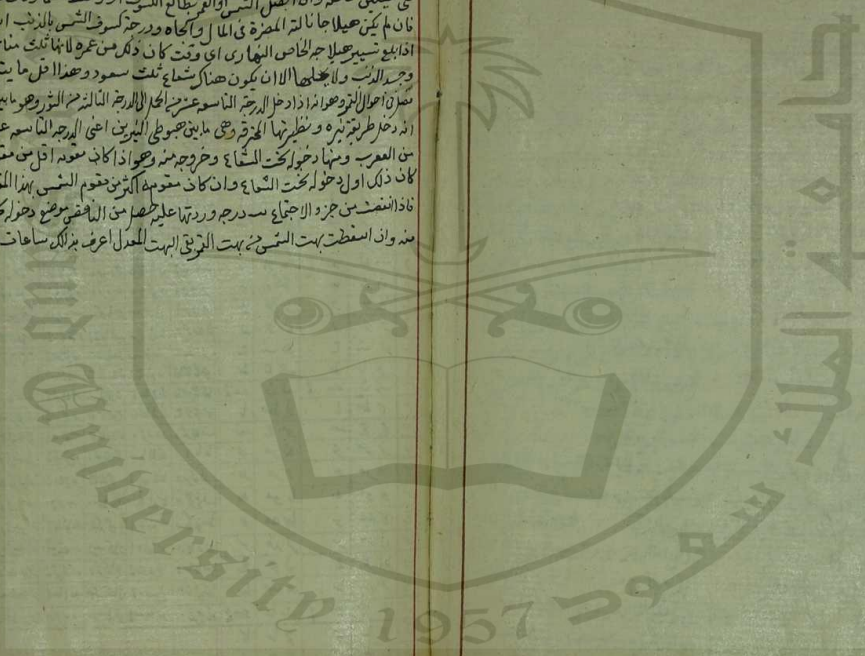 فان لم يكن هيلاجا نالته المضرة فى المال والجاه ودرجة كسوف الشمس بالذنب
اذا بلغ تسيير هيلاجه الخاص النهارى اى وقت كان ذلك من عمره لانها تلى
وجسد الذنب ولا الا ان يكون هناك شعاع ثلث سعود وهذا اقل ما
فصل فى احوال القمر وهو انه اذا دخل الدرجة التاسعه عشر من الحمل الى الدرجة الثالثه من الثور وهو مابين
انه دخل طريقة نيره ونظيرتها المحترقه وهى مابين هبوطى النيرين اعنى الدرجه التاسعه
من العقرب ومنها دخوله تحت الشعاع وخروجه منه وهو اذا كان مقومه اقل من
كان ذلك اول دخوله تحت الشعاع وان كان مقومه اكثر من مقوم الشمس بهذا
فاذا انقصت من جزو الاجتماع درجه وزدتها عليه حصل من الناقص موضع دخوله
منه وان اسقطت بهت الشمس من بهت القمر بقى البهت المعدل اعرف بذلك ساعات
جامعة الملك سعود
University 1957